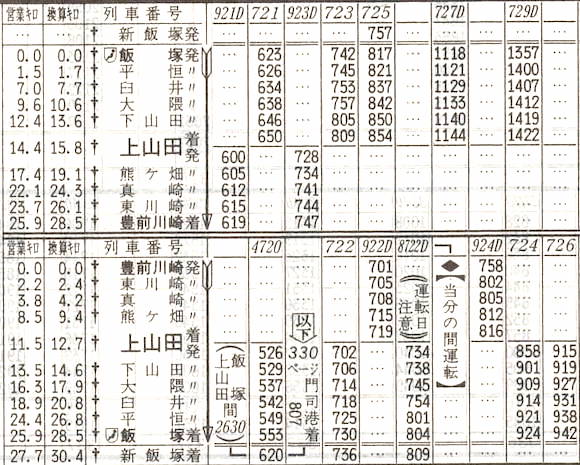 営業キロ 換算キロ 列車番号 921D 721 923D 723 725 727D 729D
… … † 新飯塚発 … … … … 757 … … … …
0.0 0.0 † 飯塚発 … 623 … 742 817 … 1118 … 1357
1.5 1.7 † 平恒〃 … 626 … 745 821 … 1121 … 1400
7.0 7.7 † 臼井〃 … 634 … 753 837 … 1129 … 1407
9.6 10.6 † 大隈〃 … 638 … 757 842 … 1133 … 1412
12.4 13.6 † 下山田〃 … 646 … 805 850 … 1140 … 1419
14.4 15.8 † 上山田着 … 650 … 809 854 … 1144 … 1422
発 600 … 728 … … … … … …
17.4 19.1 † 熊ケ畑〃 605 … 734 … … … … … …
22.1 24.3 † 真崎〃 612 … 741 … … … … … …
23.7 26.1 † 東川崎〃 615 … 744 … … … … … …
25.9 28.5 † 豊前川崎着 619 … 747 … … … … … …
営業キロ 換算キロ 列車番号 4720 722 922D 8722D 924D 724 726
0.0 0.0 † 豊前川崎発 … … … 701 … 758 … …
2.2 2.4 † 東川崎〃 … … … 705 802 … …
3.8 4.2 † 真崎〃 … … … 708 805 … …
8.5 9.4 † 熊ケ畑〃 … … … 715 812 … …
11.5 12.7 † 上山田着 … … 719 816 … …
発 526 702 … 734 … 858 915
13.5 14.6 † 下山田〃 529 706 … 738 … 901 919
16.3 17.9 † 大隈〃 537 714 … 745 … 909 927
18.9 20.8 † 臼井〃 542 718 … 754 … 914 931
24.4 26.8 † 平恒〃 549 725 … 801 … 921 938
25.9 28.5 † 飯塚着 553 730 … 804 … 924 942
27.7 30.4 † 新飯塚着 620 736 … 809 … … …
(上山田飯塚間2630)
以下330ページ
門司港着807
(運転日注意)
◆【当分の間運転】